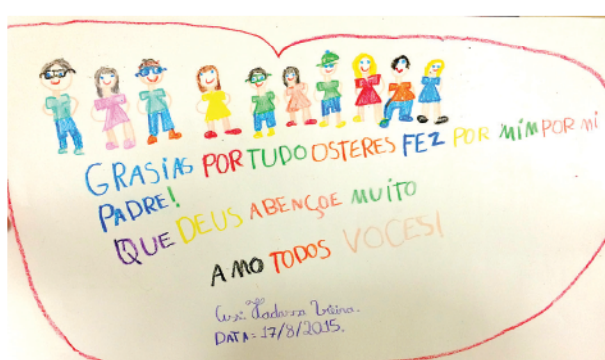 GRASIAS POR TUDO OSTERES FEZ POR MIM POR MI
PADRE!
QUE DEUS ABENÇOE MUITO
AMO TODOS VOCES!
Ass: Hadassa Vieira.
DATA: 17/8/2015.